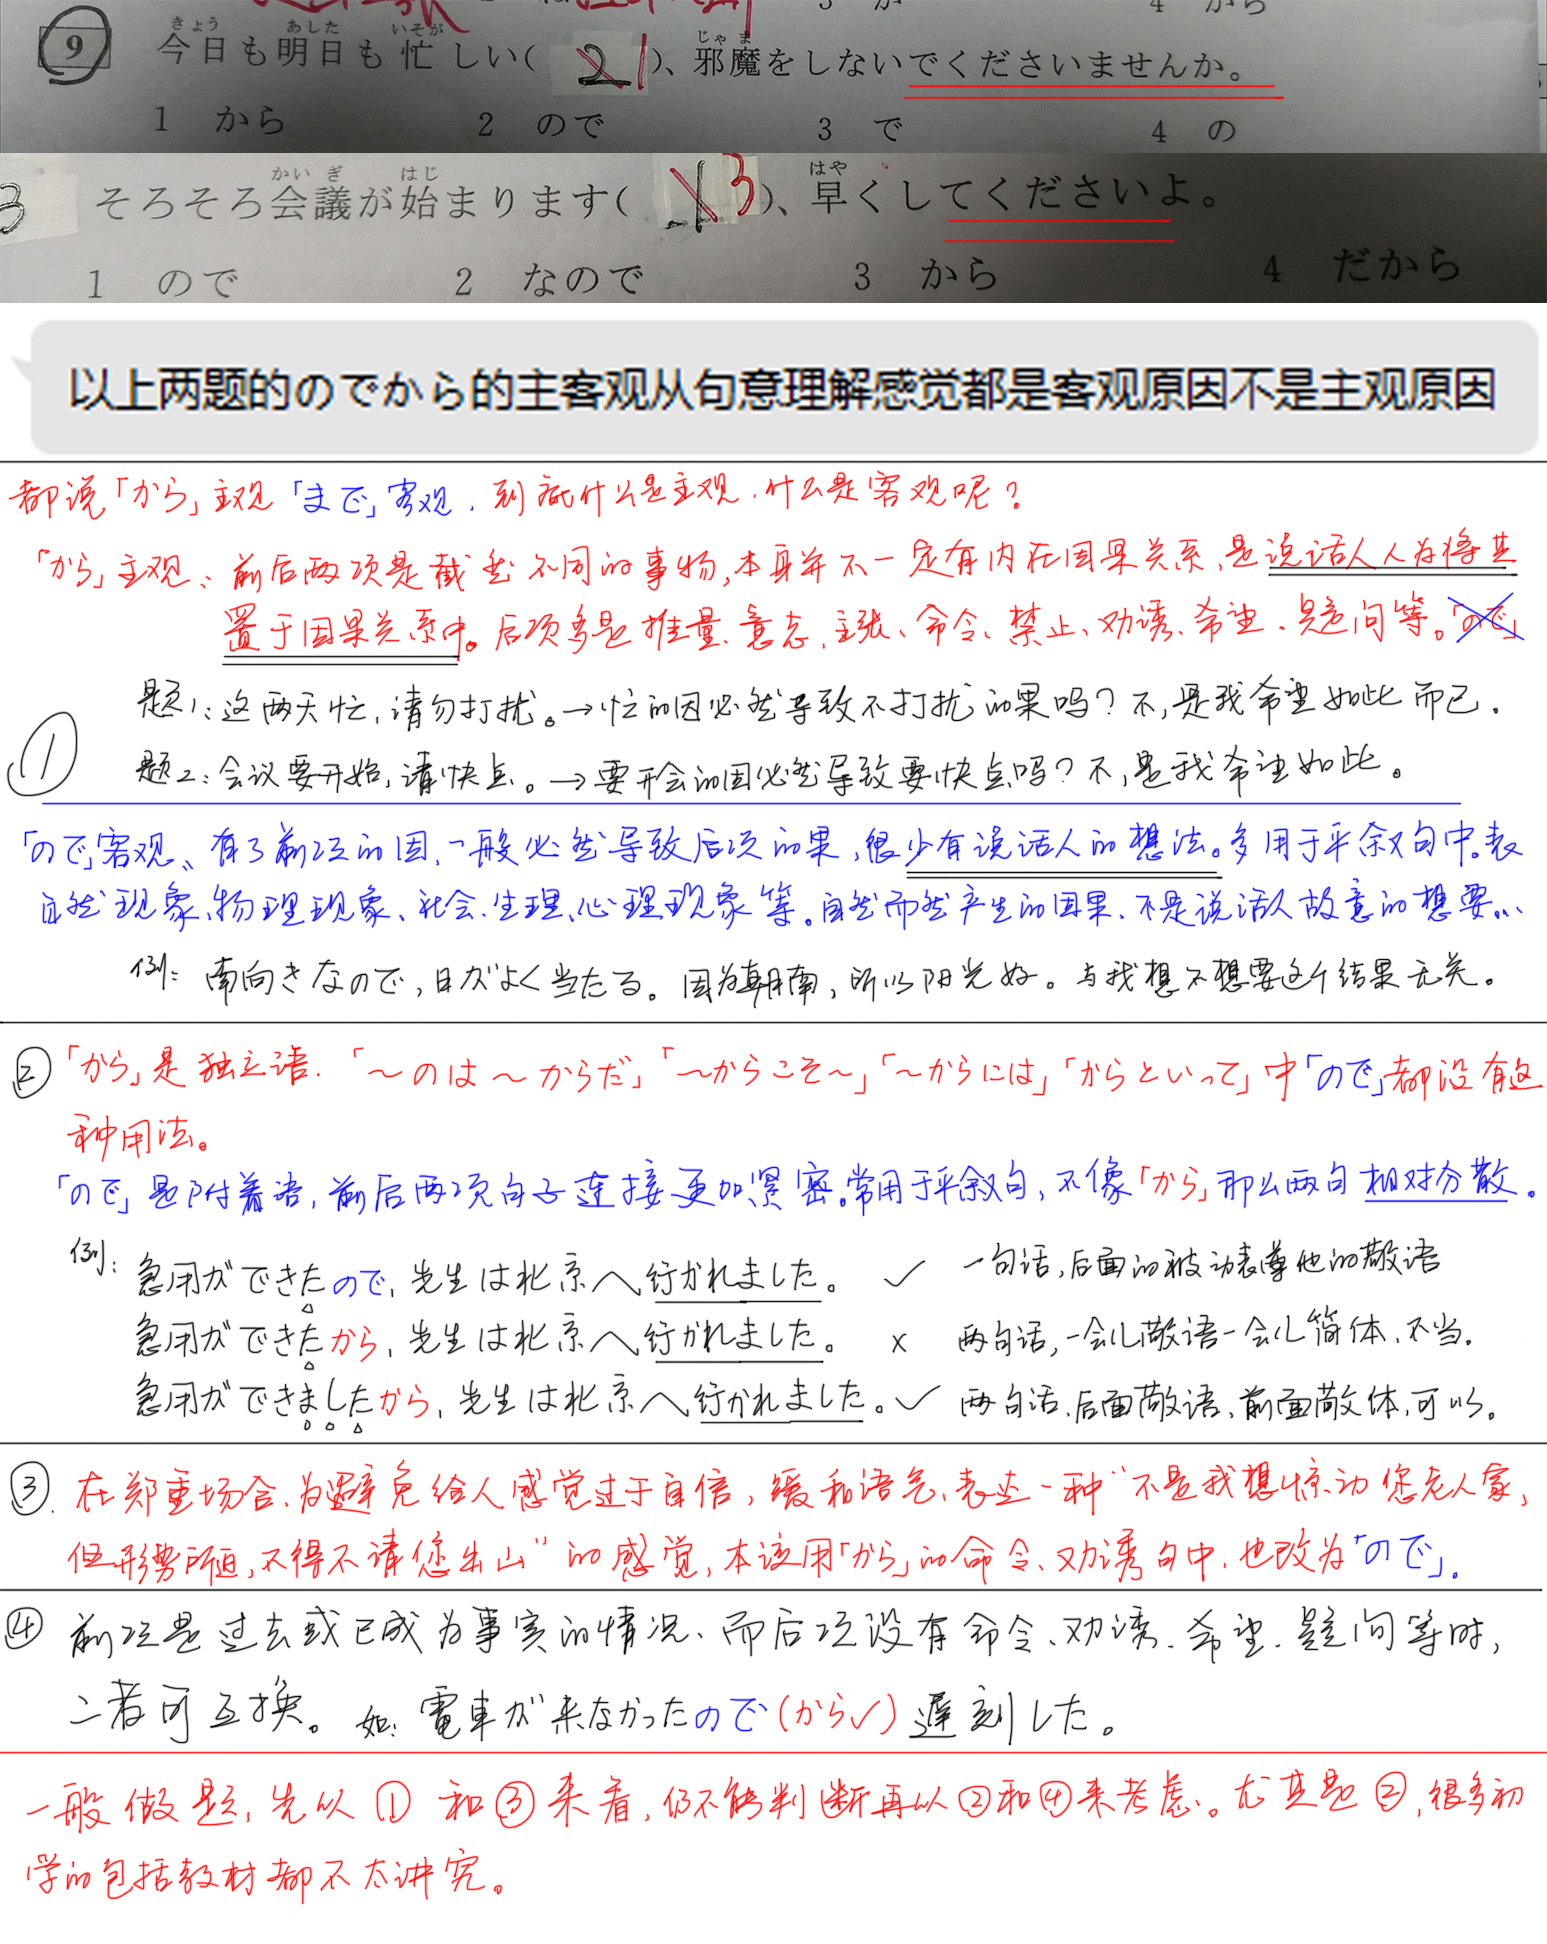 9 今日も明日も忙しい( 2 1 )、邪魔をしないでくださいませんか。
きょう あした いそが じゃま
1 から 2 ので 3 で 4 の
3 そろそろ会議が始まります( 1 3 )、早くしてくださいよ。
かいぎ はじ はや
1 ので 2 なので 3 から 4 だから
以上两题的のでから的主客观从句意理解感觉都是客观原因不是主观原因
都说「から」主观「まで」客观,到底什么是主观,什么是客观呢?
「から」主观:前后两项是截然不同的事物,本身并不一定有内在因果关系,是说话人人为将其
置于因果关系中。后项多是推量、意志、主张、命令、禁止、劝诱、希望、疑问等。「ので」
题1:这两天忙,请勿打扰。→忙的因必然导致不打扰的果吗?不,是我希望如此而已.
①
题2:会议要开始,请快点。→要开会的因必然导致要快点吗?不,是我希望如此。
「ので」客观:有了前项的因,一般必然导致后项的果,很少有说话人的想法。多用于平叙句中。表
自然现象、物理现象、社会、生理、心理现象等。自然而然产生的因果、不是说话人故意的想要...
例:南向きなので,日がよく当たる。因为朝南,所以阳光好。与我想不想要这个结果无关。
② 「から」是独立语.「〜のは〜からだ」「〜からこそ〜」「〜からには」「からといって」中「ので」都没有这
种用法。
「ので」是附着语,前后两项句子连接更加紧密。常用于平叙句,不像「から」那么两句相对分散。
例:急用ができたので,先生は北京へ行かれました。 ✓ 一句话,后面的被动表尊他的敬语
急用ができたから,先生は北京へ行かれました。 × 两句话,一会儿敬语一会儿简体,不当.
急用ができましたから,先生は北京へ行かれました。✓ 两句话,后面敬语、前面敬体,可以。
③. 在郑重场合、为避免给人感觉过于自信,缓和语气,表达一种“不是我想惊动您老人家,
但形势所迫,不得不请您出山”的感觉,本该用「から」的命令、劝诱句中,也改为「ので」.
④ 前项是过去或已成为事实的情况、而后项没有命令、劝诱、希望、疑问等时,
二者可互换。如:電車が来なかったので(から✓)遅刻した。
一般做题,先以①和③来看,仍不能判断再以②和④来考虑。尤其是②,很多初
学的包括教材都不太讲究。